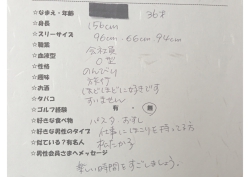 ★なまえ・年齢 36才
★身長 156cm
★スリーサイズ 96cm. 66cm. 94cm
★職業 会社員
★血液型 O型
★性格 のんびり
★趣味 旅行
★お酒 (ほどほどに)好きです
★タバコ すいません
★ゴルフ経験 有・無
★好きな食べ物 パスタ、おすし
★好きな男性のタイプ 仕事にほこりを持ってる方
★似ている?有名人 松たか子
★男性会員さまへメッセージ
楽しい時間をすごしましょう。